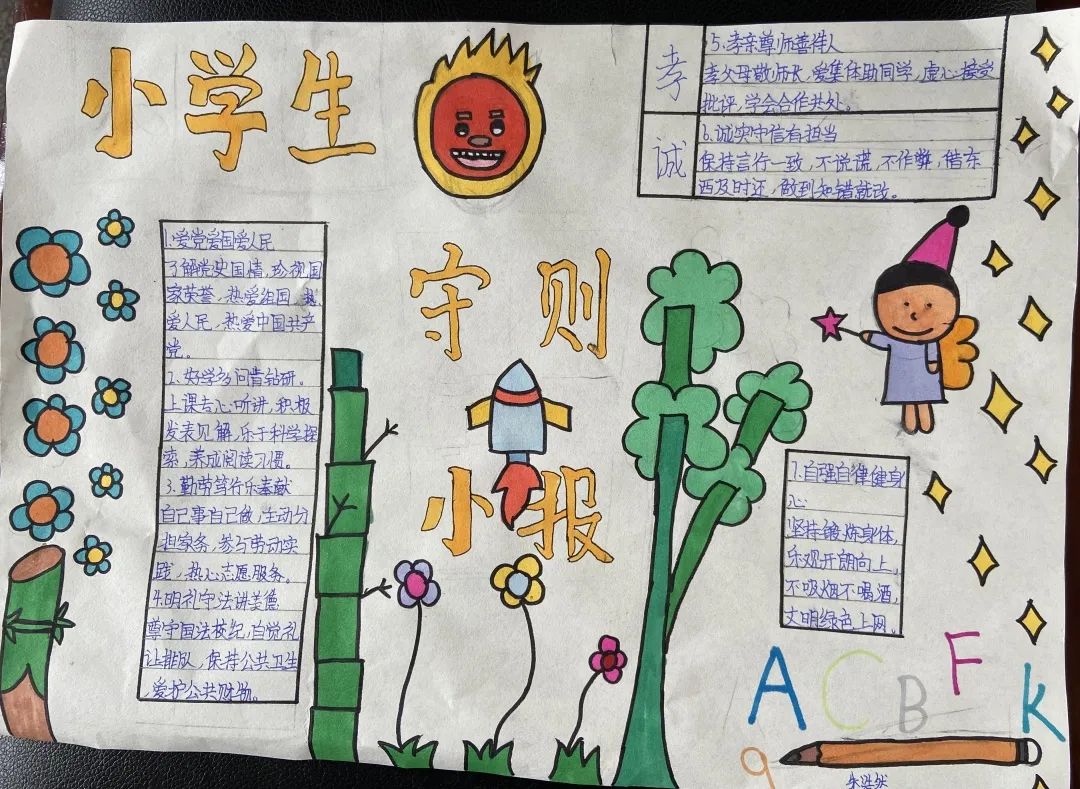 小学生
守则
小报
孝
5.孝亲尊师善待人
孝父母敬师长,爱集体助同学,虚心接受
批评,学会合作共处。
诚
6.诚实守信有担当
保持言行一致,不说谎,不作弊,借东
西及时还,做到知错就改。
1.爱党爱国爱人民
了解党史国情,珍视国
家荣誉,热爱祖国,热
爱人民,热爱中国共产
党。
2.好学多问肯钻研。
上课专心听讲,积极
发表见解,乐于科学探
索,养成阅读习惯。
3.勤劳笃行乐奉献
自己事自己做,主动分
担家务,参与劳动实
践,热心志愿服务。
4.明礼守法讲美德
尊守国法校纪,自觉礼
让排队,保持公共卫生
,爱护公共财物。
7.自强自律健身
心
坚持锻炼身体,
乐观开朗向上,
不吸烟不喝酒,
文明绿色上网。
A C B F K
9